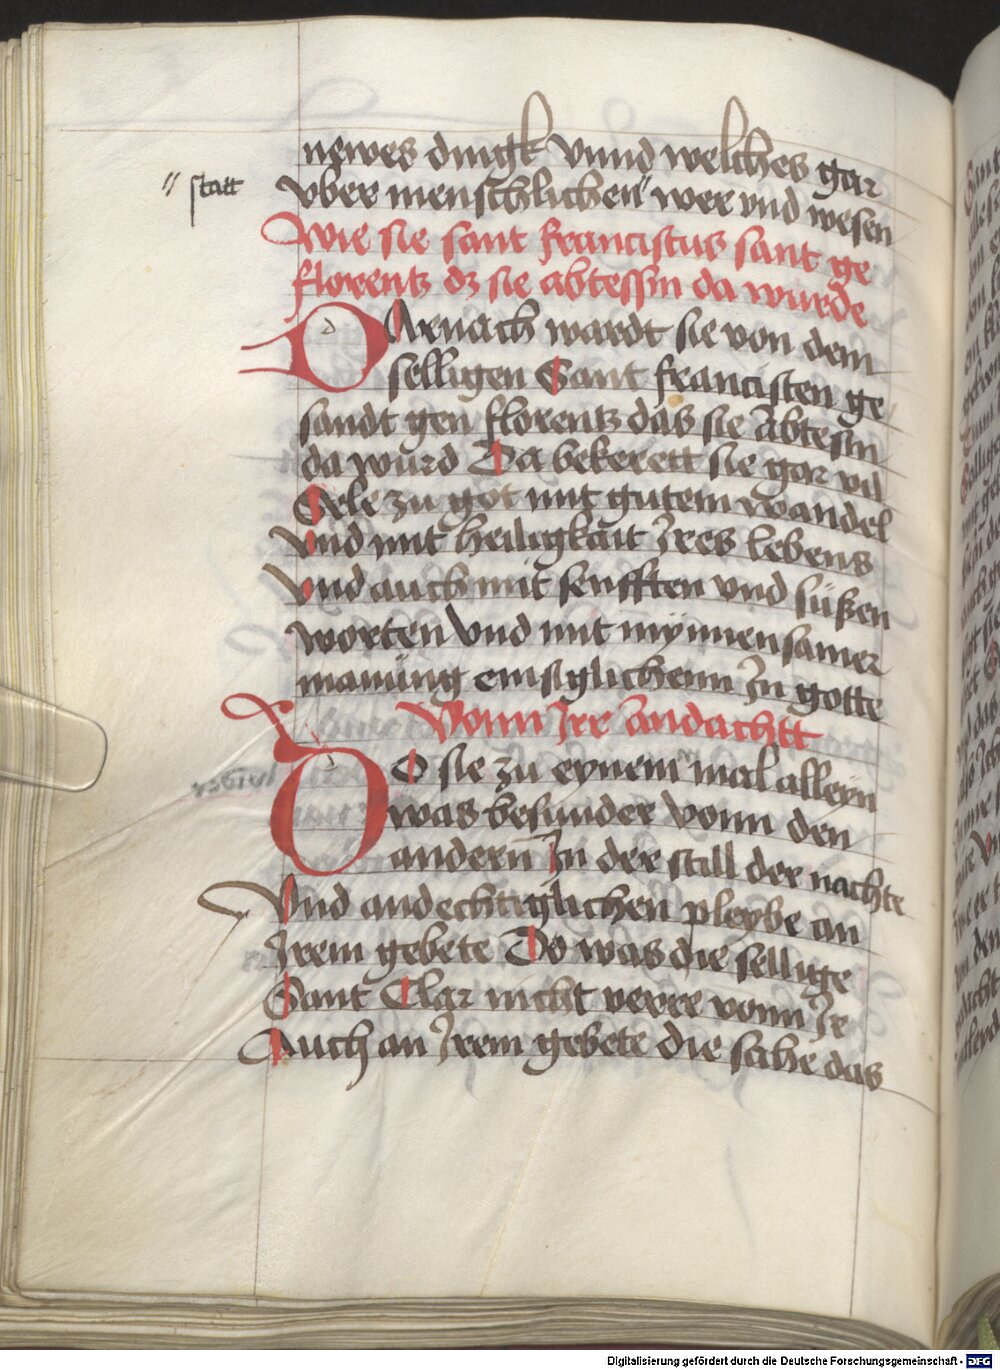 newes dingk vnnd welches gar
" statt
vber menschlichen" wer vnd wesen
wie sie sant franciscus sant ge
florentz dz sie abtessin da wurde
DArnach wardt sie von dem
selligen Sant francisten ge
sandt gen florentz das sie Abtesin
da wurd Da bekerett sie gar vil
Sele zu got mit gutem wandel
Vnd mit heiligkait Jres lebens
Vnd auch mit senfften vnd süßen
worten Vnd mit mÿnnensamer
manüng emsiglichenn Jn gotte
Vonn Jrr Andachtt
DO sie zu eynem mal alleyn
was besunder vonn den
andern Jn der still der nachte
Vnd andechtiglichen pleybe an
Jrem gebete Do was die sellige
Sant Clar nicht verre vonn Jr
Auch an Jrem gebete die sahe das
Digitalisierung gefördert durch die Deutsche Forschungsgemeinschaft - DFG